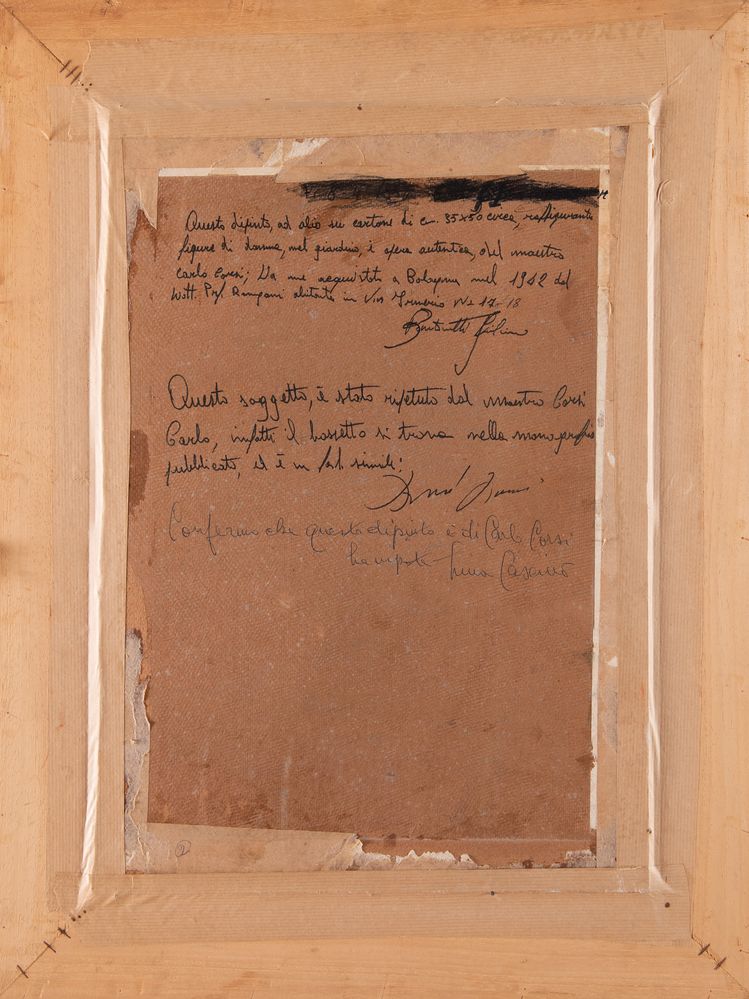 Questo dipinto, ad olio su cartone di cm. 35x50 circa, raffigurante
figure di donna, nel giardino, è opera autentica, del maestro
Carlo Corsi; Da me acquistato a Bologna nel 1942 dal
Dott. Prof. abitante in Via Irnerio Nº 17-18
Questo soggetto, è stato ripetuto dal maestro Corsi
Carlo, infatti il bozzetto si trova nella monografia
pubblicato, ed è un fac simile!
Confermo che questo dipinto è di Carlo Corsi
la nipote
2